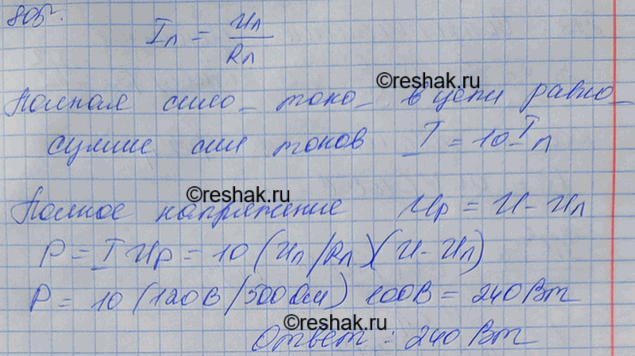 805.
Iл = Uл/Rл
©reshak.ru
Полная сила тока в цепи равна
сумме сил токов I = 10 Iл
©reshak.ru
Полное напряжение Uр = U - Uл
P = I Uр = 10 (Uл/Rл)(U - Uл)
P = 10 (120В/500Ом) 100В = 240Вт
©reshak.ru
Ответ: 240Вт